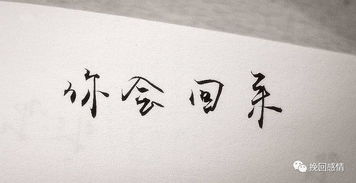 你会回来
挽回感情